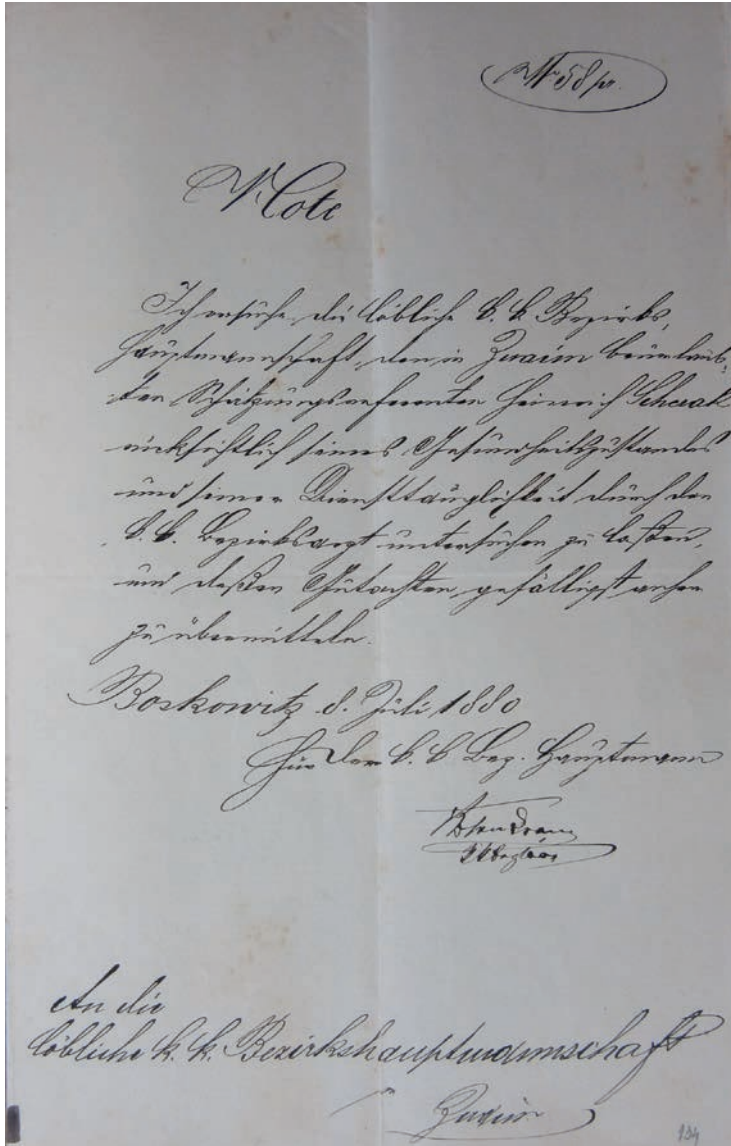 N 58/pr.
Note
Ich ersuche die löbliche k. k. Bezirks,
hauptmannschaft, den in Znaim beurlaub,
ten Schätzungsreferenten Heinrich
rücksichtlich seines Gesundheitszustandes
und seiner Diensttauglichkeit durch den
k. k. Bezirksarzt untersuchen zu laßen,
und deßen Gutachten gefälligst anher
zu übermitteln.
Boskowitz 8. Juli 1880
Für den k. k. Bez. Hauptmann
An die
löbliche k. k. Bezirkshauptmannschaft
in
Znaim